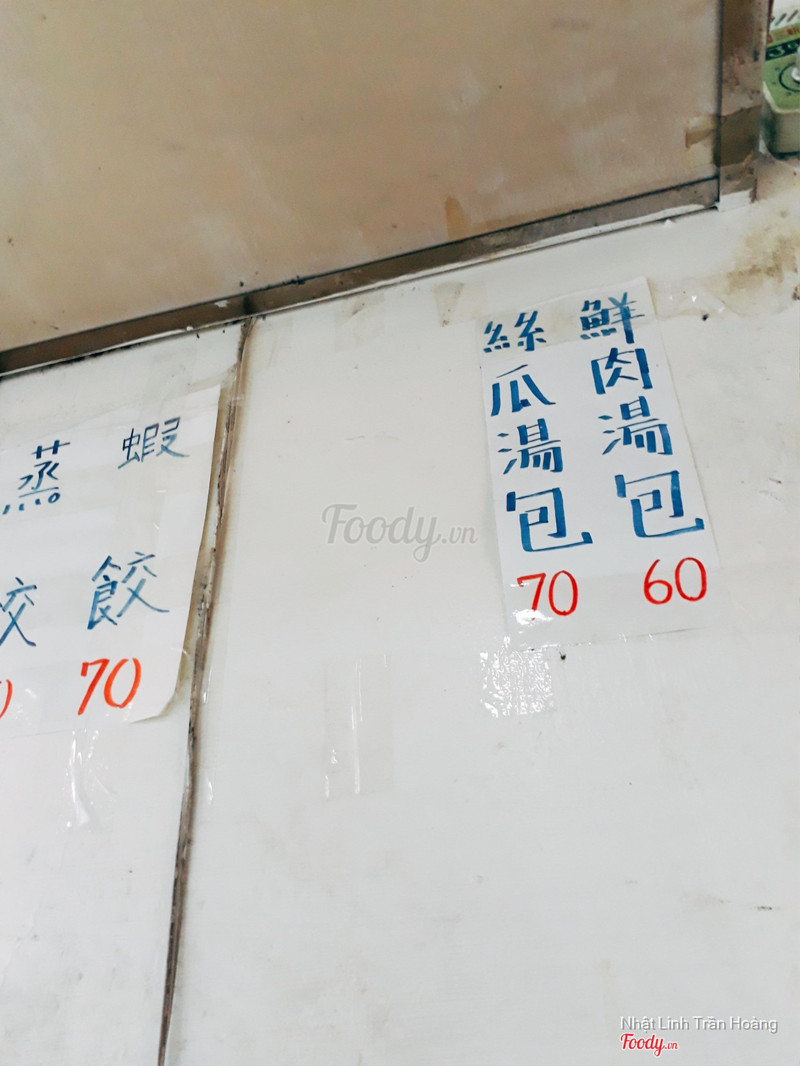 鮮肉湯包 60
絲瓜湯包 70
蝦餃 70
蒸
Foody.vn
Nhật Linh Trần Hoàng
Foody.vn